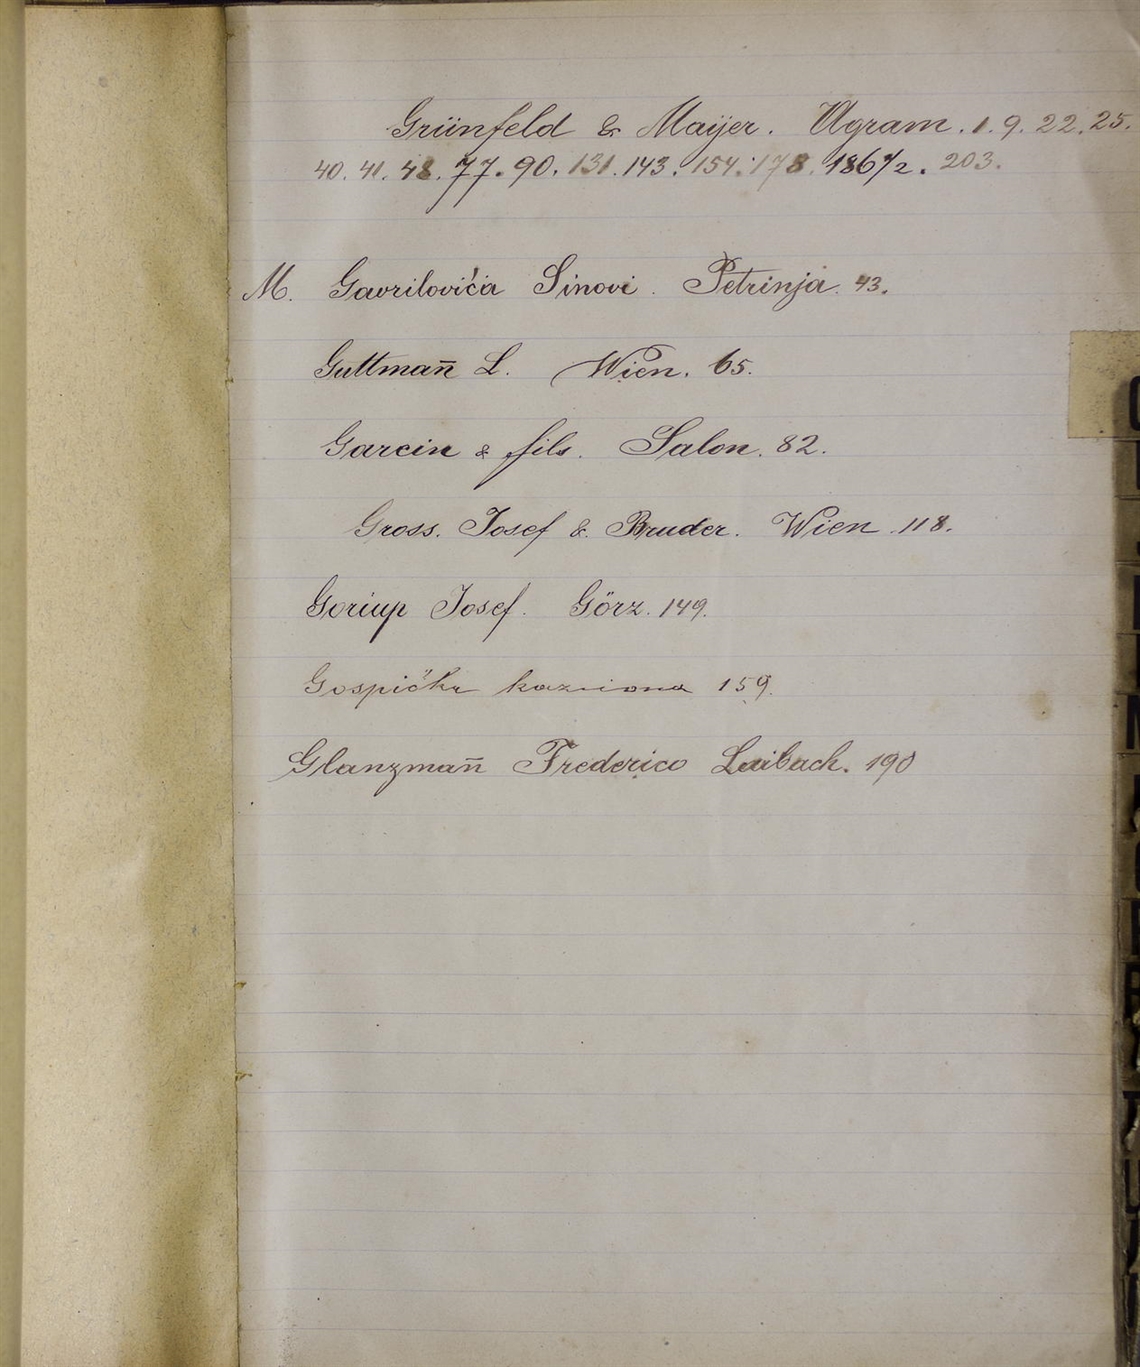 Grünfeld & Maÿer. Agram. 1. 9. 22. 25.
40. 41. 48. 77. 90. 131. 143. 154. 178. 186/7/2. 203.
M. Gavrilovića Sinovi. Petrinja. 43.
Guttmañ L. Wien. 65.
Garcin & fils. Salon. 82.
Gross. Josef & Bruder. Wien. 118.
Goriup Josef. Görz. 149.
Gospićka kazniona 159.
Glanzmañ Frederico Laibach. 190